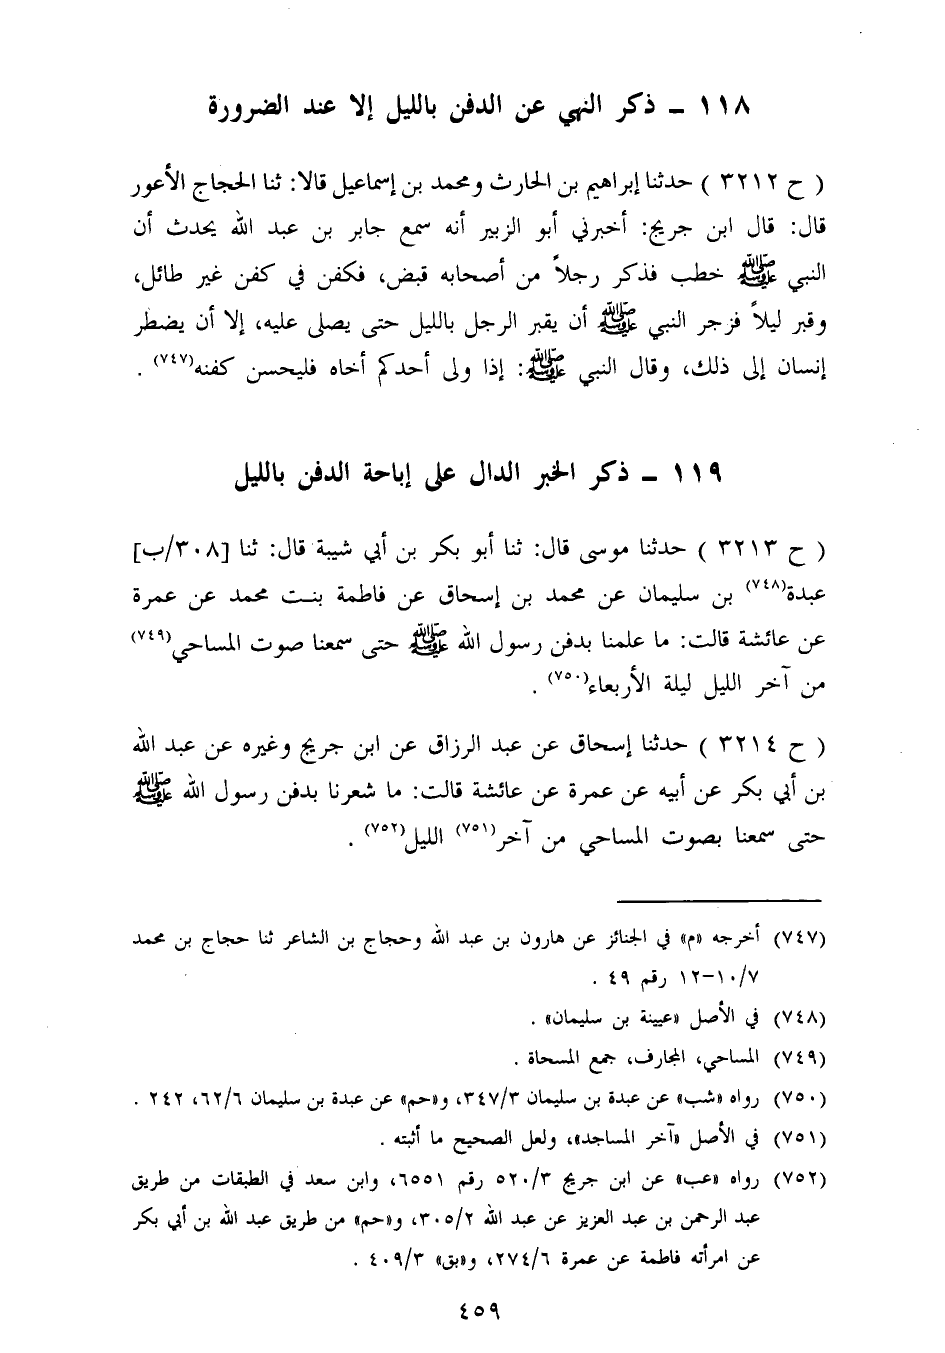 ١١٨ ـ ذكر النهي عن الدفن بالليل إلا عند الضرورة
( ح ٣٢١٢ ) حدثنا إبراهيم بن الحارث ومحمد بن إسماعيل قالا: ثنا الحجاج الأعور
قال: قال ابن جريج: أخبرني أبو الزبير أنه سمع جابر بن عبد الله يحدث أن
النبي ﷺ خطب فذكر رجلاً من أصحابه قبض، فكفن في كفن غير طائل،
وقبر ليلاً فزجر النبي ﷺ أن يقبر الرجل بالليل حتى يصلى عليه، إلا أن يضطر
إنسان إلى ذلك، وقال النبي ﷺ: إذا ولى أحدكم أخاه فليحسن كفنه(٧٤٧) .
١١٩ ـ ذكر الخبر الدال على إباحة الدفن بالليل
( ح ٣٢١٣ ) حدثنا موسى قال: ثنا أبو بكر بن أبي شيبة قال: ثنا [٣٠٨/ب]
عبدة(٧٤٨) بن سليمان عن محمد بن إسحاق عن فاطمة بنت محمد عن عمرة
عن عائشة قالت: ما علمنا بدفن رسول الله ﷺ حتى سمعنا صوت المساحي(٧٤٩)
من آخر الليل ليلة الأربعاء(٧٥٠) .
( ح ٣٢١٤ ) حدثنا إسحاق عن عبد الرزاق عن ابن جريج وغيره عن عبد الله
بن أبي بكر عن أبيه عن عمرة عن عائشة قالت: ما شعرنا بدفن رسول الله ﷺ
حتى سمعنا بصوت المساحي من آخر(٧٥١) الليل(٧٥٢) .
(٧٤٧) أخرجه «م» في الجنائز عن هارون بن عبد الله وحجاج بن الشاعر ثنا حجاج بن محمد
٧/١٠-١٢ رقم ٤٩ .
(٧٤٨) في الأصل «عيينة بن سليمان» .
(٧٤٩) المساحي، المجارف، جمع المسحاة .
(٧٥٠) رواه «شب» عن عبدة بن سليمان ٣٤٧/٣، و«حم» عن عبدة بن سليمان ٦٢/٦، ٢٤٢ .
(٧٥١) في الأصل «آخر المساجد»، ولعل الصحيح ما أثبته .
(٧٥٢) رواه «عب» عن ابن جريج ٥٢٠/٣ رقم ٦٥٥١، وابن سعد في الطبقات من طريق
عبد الرحمن بن عبد العزيز عن عبد الله ٣٠٥/٢، و«حم» من طريق عبد الله بن أبي بكر
عن امرأته فاطمة عن عمرة ٢٧٤/٦، و«بق» ٤٠٩/٣ .
٤٥٩